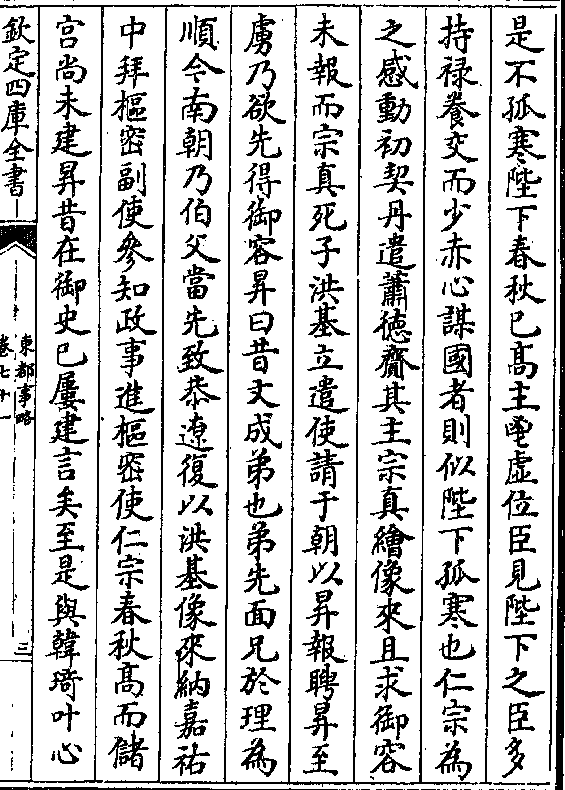 是不孤寒陛下春秋已髙主鬯虚位臣見陛下之臣多
持禄養交而少赤心謀國者則似陛下孤寒也仁宗為
之感動初契丹遣蕭徳齎其主宗真繪像來且求御容
未報而宗真死子洪基立遣使請于朝以昇報聘昇至
虜乃欲先得御容昇曰昔文成弟也弟先面兄於理為
順今南朝乃伯父當先致恭遼復以洪基像來納嘉祐
中拜樞密副使參知政事進樞密使仁宗春秋髙而儲
宫尚未建昇昔在御史已屢建言矣至是與韓琦叶心
欽定四庫全書
東都事略
卷七十一
三